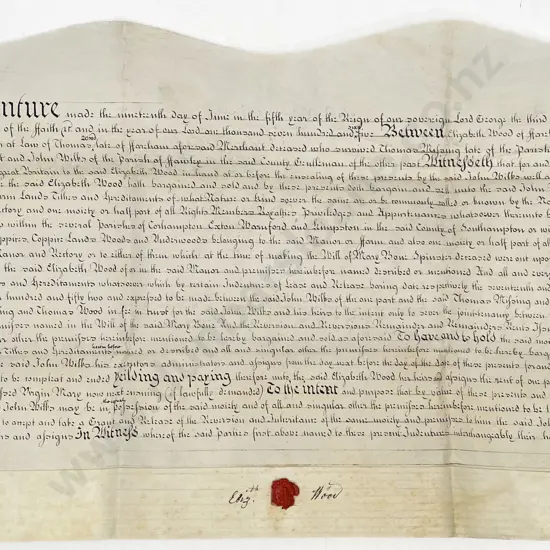 nture made the nineteenth day of June in the fifth year of the Reign of our sovereign Lord George the third
of the Faith &c and in the year of our Lord one thousand seven hundred and sixty five Between Elizabeth Wood of
at Law of Thomas late of aforesaid Merchant deceased who survived Thomas Missing late of the Parish
and John Wilks of the Parish of Fawley in the said County Gentleman of the other part Witnesseth that for and
Great Britain to the said Elizabeth Wood in hand at or before the ensealing of these presents by the said John Wilks well a
the said Elizabeth Wood hath bargained and sold and by these presents doth bargain and sell unto the said John
Lands Tithes and Hereditaments of what Nature or Kind soever the same are or be commonly called or known by the
Rectory and one moiety or half part of all Rights Members Royalties Priviledges and Appurtenances whatsoever thereunto
within the several Parishes of Corhampton Exton Warnford and Kimpston in the said County of Southampton or
Coppices Coppice Lands Woods and Underwoods belonging to the said Manor or Farm and also one moiety or half part of all
Manor and Rectory or to either of them which at the time of making the Will of Mary Bone Spinster deceased were out upon
the said Elizabeth Wood of or in the said Manor and premisses herein before named described or mentioned And all and every
and Hereditaments whatsoever which by certain Indentures of Lease and Release bearing date respectively the seventeenth and
hundred and fifty two and expressed to be made between the said John Wilks of the one part and the said Thomas Missing and
and Thomas Wood in fee in trust for the said John Wilks and his heirs to the intent only to sever the joint tenancy between
premisses named in the Will of the said Mary Bone And the Reversion and Reversions Remainder and Remainders Rents
other the premisses herein before mentioned to be hereby bargained and sold as aforesaid To have and to hold the said
Tithes and Hereditaments herein before named or described and all and singular other the premisses herein before mentioned to be hereby
said John Wilks his executors administrators and assigns from the day next before the day of the date of these presents for and
to be compleat and ended Yeilding and paying therefore unto the said Elizabeth Wood her heirs and assigns the rent of one
Virgin Mary now next ensuing (if lawfully demanded) To the intent and purpose that by virtue of these presents and
John Wilks may be in the actual Possession of the said moiety and of all and singular other the premisses herein before mentioned to be
to accept and take a Grant and Release of the Reversion and Inheritance of the same moiety and premisses to him the said John
and assigns In Witness whereof the said Parties first above named to these present Indentures interchangeably their
Eliz.th Wood